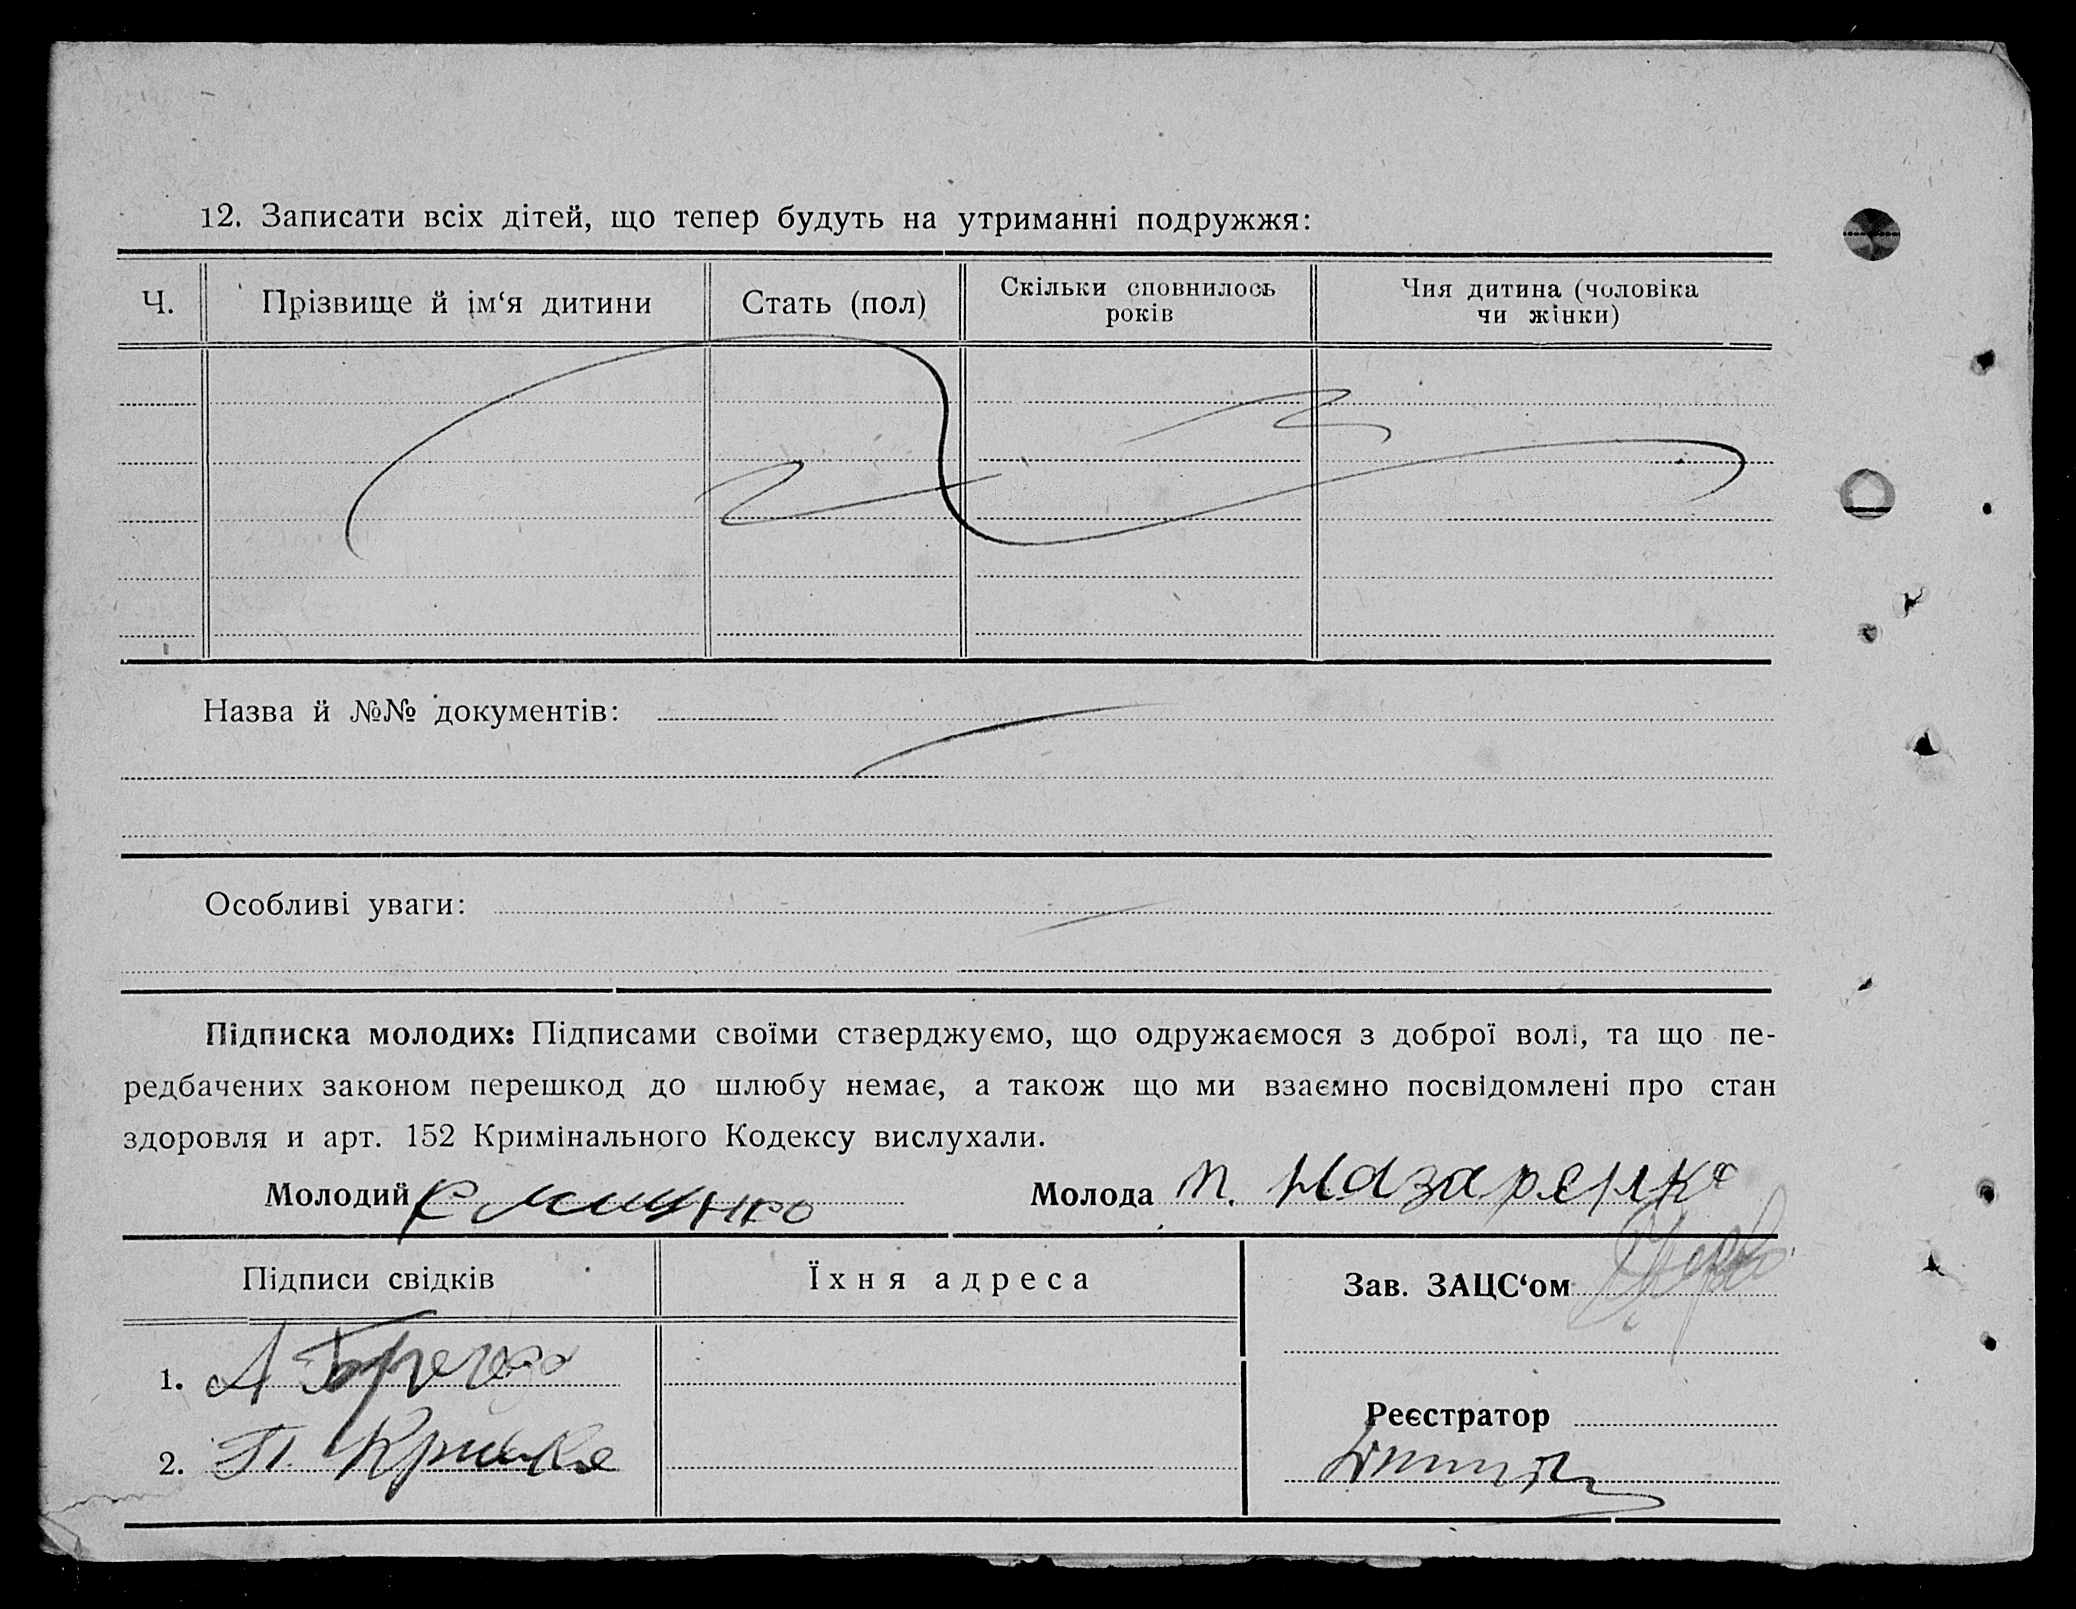 12. Записати всіх дітей, що тепер будуть на утриманні подружжя:
Ч. Прізвище й ім‘я дитини Стать (пол) Скільки сповнилось років Чия дитина (чоловіка чи жінки)
Назва й №№ документів:
Особливі уваги:
Підписка молодих: Підписами своїми стверджуємо, що одружаємося з доброї волі, та що пе-
редбачених законом перешкод до шлюбу немає, а також що ми взаємно посвідомлені про стан
здоровля и арт. 152 Кримінального Кодексу вислухали.
Молодий Молода П. Назаренко
Підписи свідків Їхня адреса Зав. ЗАЦС‘ом
1. А
Реєстратор
2. П.